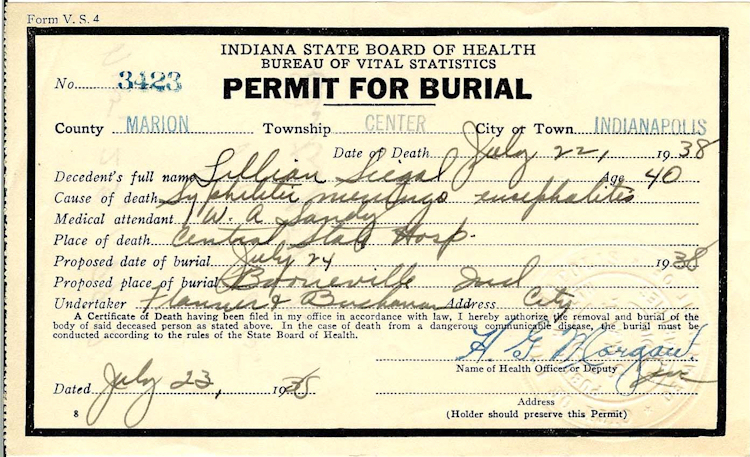 Form V. S. 4
INDIANA STATE BOARD OF HEALTH
BUREAU OF VITAL STATISTICS
No. 3423 PERMIT FOR BURIAL
County MARION Township CENTER City or Town INDIANAPOLIS
Date of Death July 22, 1938
Decedent's full name Lillian Siegal Age 40
Cause of death Syphilitic meningo encephalitis
Medical attendant W. A. Sandy
Place of death Central State Hosp.
Proposed date of burial July 24 1938
Proposed place of burial Booneville Ind
Undertaker Flanner & Buchanan Address City
A Certificate of Death having been filed in my office in accordance with law, I hereby authorize the removal and burial of the
body of said deceased person as stated above. In the case of death from a dangerous communicable disease, the burial must be
conducted according to the rules of the State Board of Health.
H. G. Morgan.
Name of Health Officer or Deputy
Dated July 23, 1938
Address
8 (Holder should preserve this Permit)